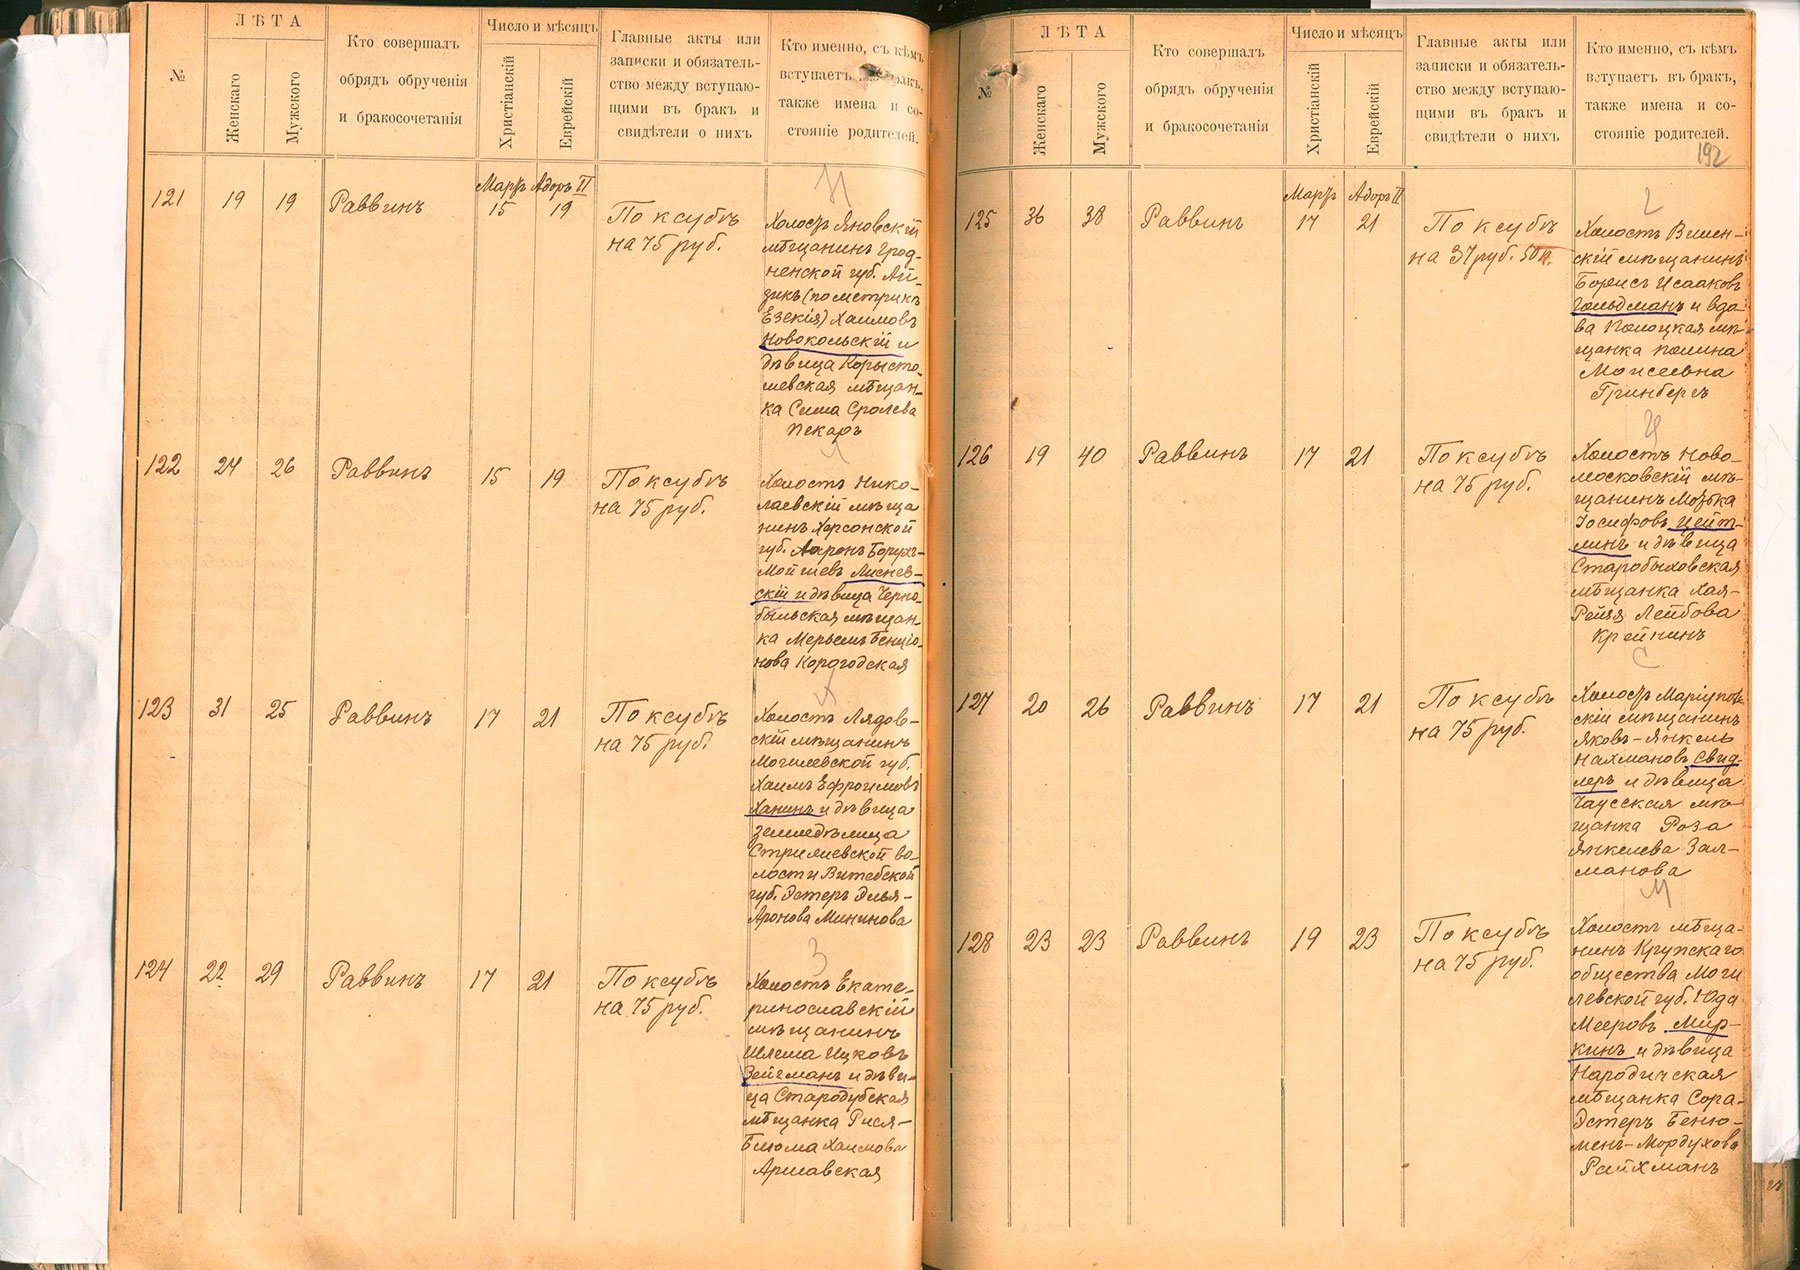 №
ЛѢТА
Женскаго
Мужского
Кто совершалъ
обрядъ обрученія
и бракосочетанія
Число и мѣсяцъ
Христіанскій
Еврейскій
Главные акты или
записки и обязатель-
ство между вступаю-
щими въ бракъ и
свидѣтели о нихъ
Кто именно, съ кѣмъ
вступаетъ въ бракъ,
также имена и со-
стояніе родителей.
Н
Мартъ Адоръ II
121 19 19 Раввинъ 15 19 По ксубѣ
на 75 руб.
Холостъ Яновскій
мѣщанинъ Грод-
ненской губ. Ай-
зикъ (по метрикѣ
Езекія) Хаимовъ
Новокольскій и
дѣвица Коросты-
шевская мѣщан-
ка Сима Сролева
Пекаръ
Л
122 24 26 Раввинъ 15 19 По ксубѣ
на 75 руб.
Холостъ Нико-
лаевскій мѣща
нинъ Херсонской
губ. Ааронъ Борухъ-
Мойшевъ Лиснев-
скій и дѣвица Черно-
быльская мѣщан-
ка Мерьемъ Бенціо-
нова Корогодская
Х
123 31 25 Раввинъ 17 21 По ксубѣ
на 75 руб.
Холостъ Лядов-
скій мѣщанинъ
Могилевской губ.
Хаимъ Ефроимовъ
Ханинъ и дѣвица
земледѣлица
волости Витебской
губ. Эстеръ Элья-
Аронова Мининова
З
124 22 29 Раввинъ 17 21 По ксубѣ
на 75 руб.
Холостъ Екате-
ринославскій
мѣщанинъ
Шлема Ицковъ
Зейгманъ и дѣви-
ца Стародубская
мѣщанка Рися-
Блюма Хаимова
Аршавская
№
ЛѢТА
Женскаго
Мужского
Кто совершалъ
обрядъ обрученія
и бракосочетанія
Число и мѣсяцъ
Христіанскій
Еврейскій
Главные акты или
записки и обязатель-
ство между вступаю-
щими въ бракъ и
свидѣтели о нихъ
Кто именно, съ кѣмъ
вступаетъ въ бракъ,
также имена и со-
стояніе родителей.
192
Мартъ Адоръ II
125 36 38 Раввинъ 17 21 По ксубѣ
на 37 руб. 50 к.
Холостъ Вилен-
скій мѣщанинъ
Борисъ Исааковъ
Гольдманъ и вдо-
ва Полоцкая мѣ-
щанка Полина
Моисеевна
Гринбергъ
Ц
126 19 40 Раввинъ 17 21 По ксубѣ
на 75 руб.
Холостъ Ново-
московскій мѣ-
щанинъ Мотька
Іосифовъ Цейт-
линъ и дѣвица
Старобыховская
мѣщанка Хая-
Рейзя Лейбова
Крейнинъ
С
127 20 26 Раввинъ 17 21 По ксубѣ
на 75 руб.
Холостъ Маріуполь
скій мѣщанинъ
Яковъ-Янкель
Нахмановъ Свид-
леръ и дѣвица
Чаусская мѣ-
щанка Роза
Янкелева Зал-
манова
М
128 23 23 Раввинъ 19 23 По ксубѣ
на 75 руб.
Холостъ мѣща-
нинъ Крупскаго
общества Моги
левской губ. Юда
Мееровъ Мир-
кинъ и дѣвица
Народичская
мѣщанка Сора-
Эстеръ Беню-
менъ-Мордухова
Райхманъ